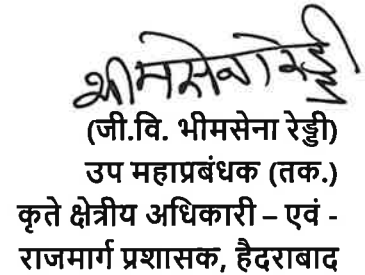 भीमसेना रेड्डी
(जी.वि. भीमसेना रेड्डी)
उप महाप्रबंधक (तक.)
कृते क्षेत्रीय अधिकारी – एवं -
राजमार्ग प्रशासक, हैदराबाद